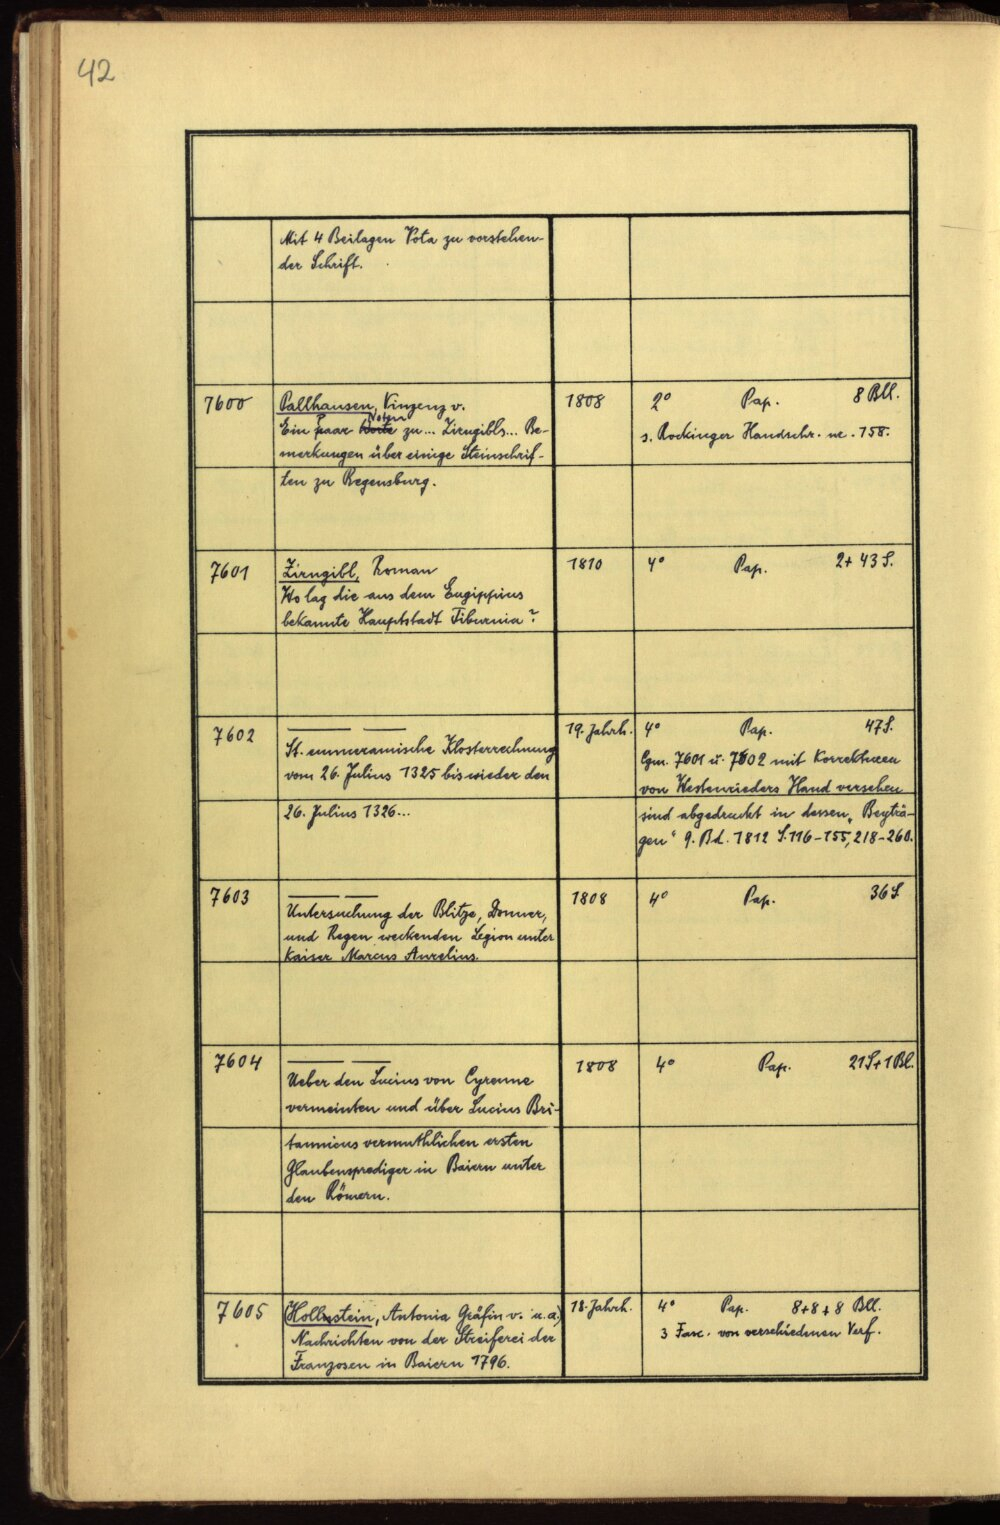 42
Mit 4 Beilagen Vota zu vorstehen-
der Schrift.
7600 Pallhausen, Vinzenz v. 1808 2° Pap. 8 Bll.
Noten
Ein paar Worte zu... Zirngibls... Be- s. Rockinger Handschr. nr. 158.
merkungen über einige Steinschrif-
ten zu Regensburg.
7601 Zirngibl, Roman 1810 4° Pap. 2+43 S.
Wo lag die aus dem Eugippius
bekannte Hauptstadt Tiburnia?
7602 —— —— 19. Jahrh. 4° Pap. 47 S.
St. emmeramische Klosterrechnung Cgm. 7601 u. 7602 mit Korrekturen
vom 26. Julius 1325 bis wieder den von Westenrieders Hand versehen
26. Julius 1326... sind abgedruckt in dessen „Beyträ-
gen“ 9. Bd. 1812 S. 116-155, 218-260.
7603 —— —— 1808 4° Pap. 36 S
Untersuchung der Blitze, Donner,
und Regen weckenden Legion unter
Kaiser Marcus Aurelius.
7604 —— —— 1808 4° Pap. 21 S + 1 Bl.
Ueber den Lucius von Cyrenne
vermeinten und über Lucius Bri-
tannicus vermuthlichen ersten
Glaubensprediger in Baiern unter
den Römern.
7605 Hollnstein, Antonia Gräfin v. u.a.) 18. Jahrh. 4° Pap. 8+8+8 Bll.
Nachrichten von der Streiferei der 3 Fasc. von verschiedenen Verf.
Franzosen in Baiern 1796.